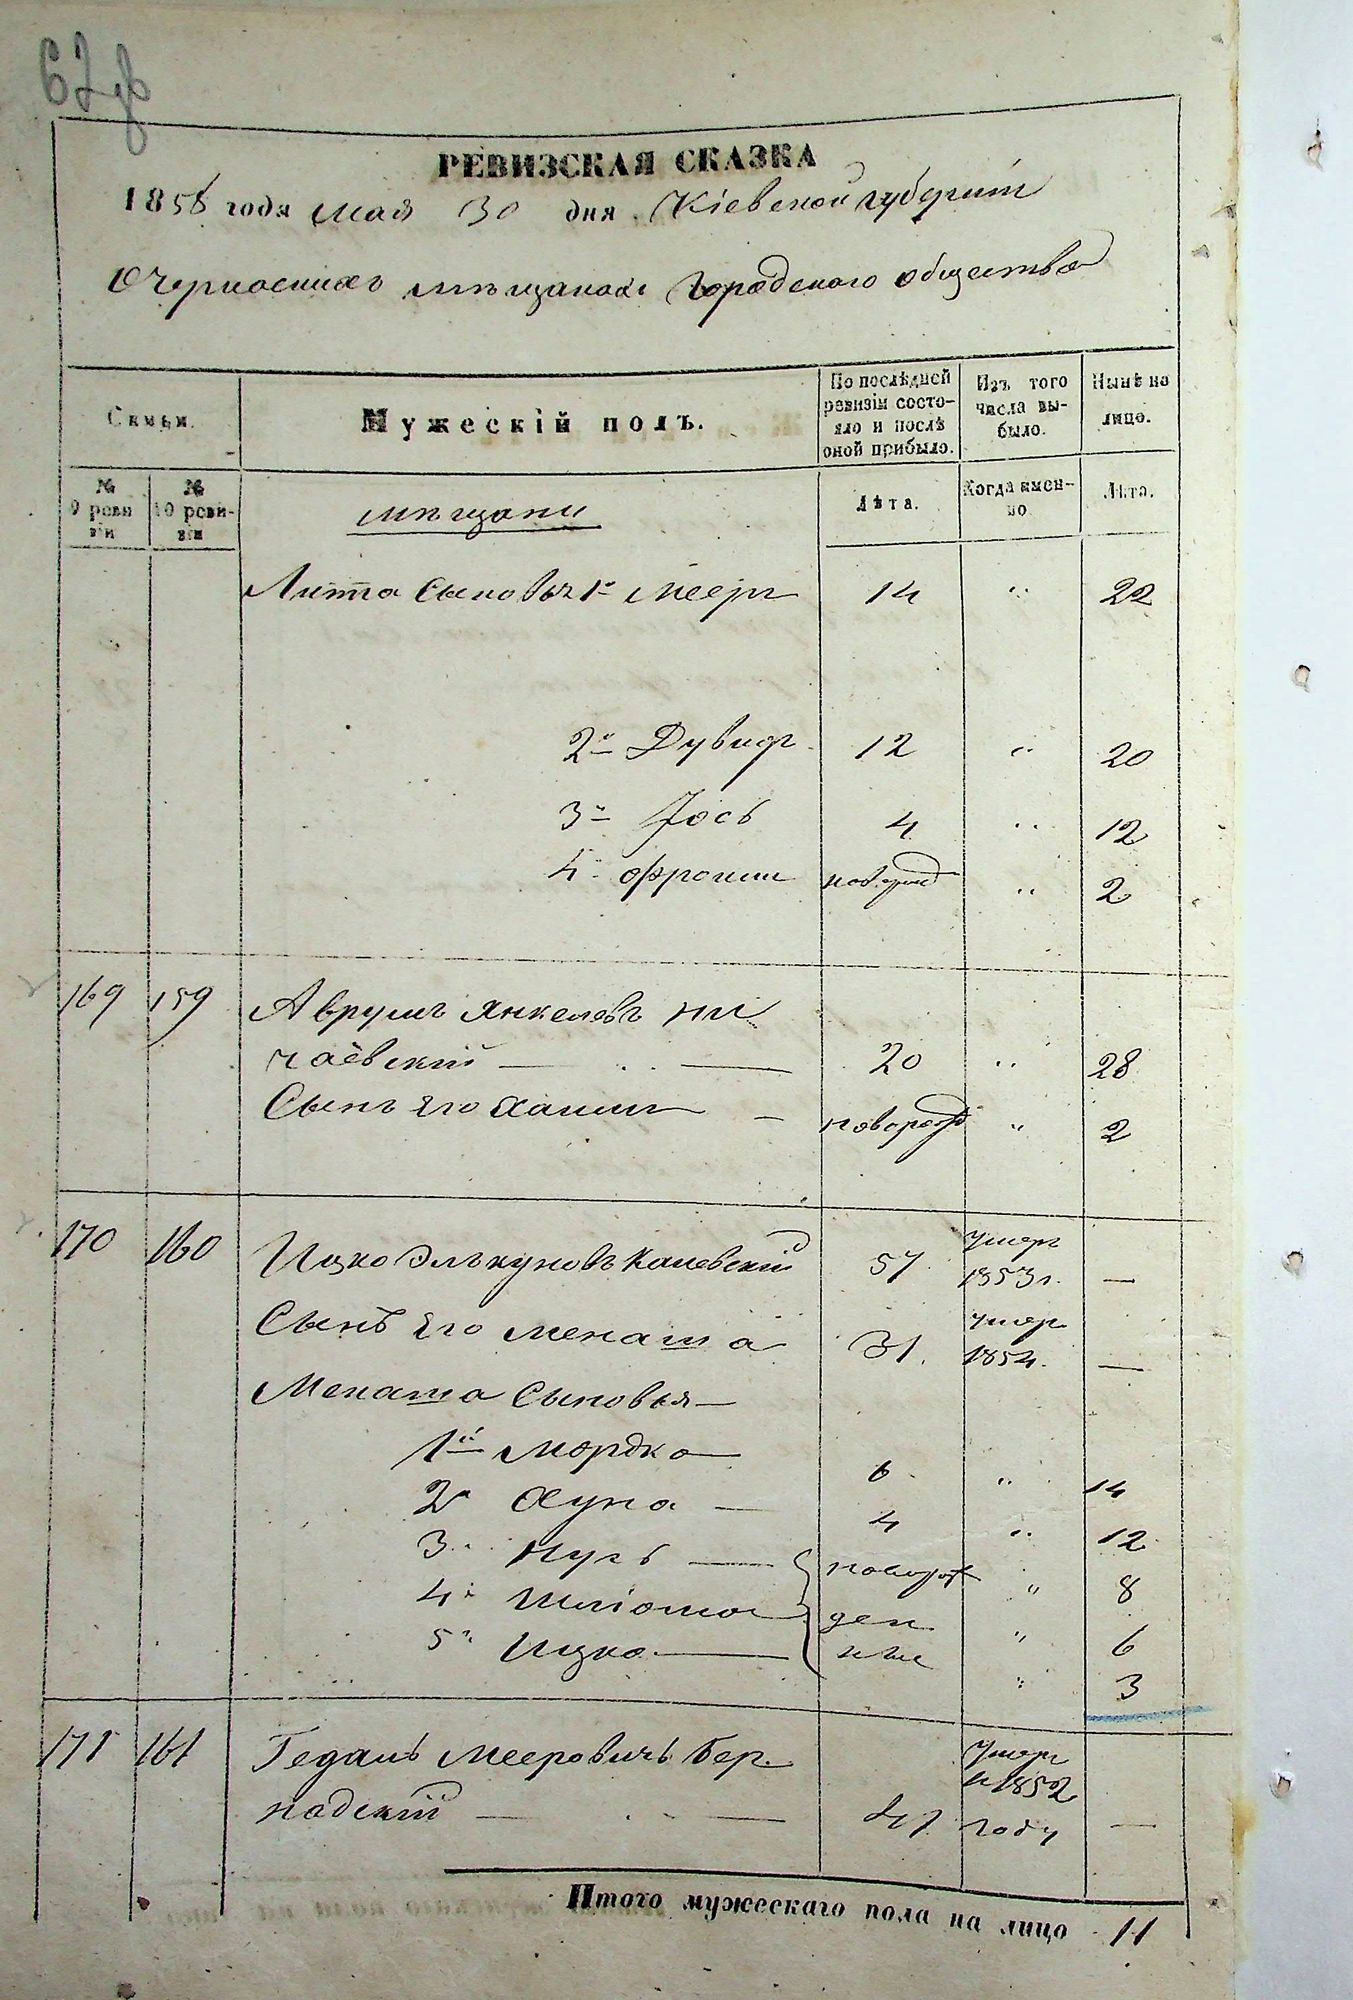 67 об
РЕВИЗСКАЯ СКАЗКА
1858 года мая 30 дня Кіевской губерніи
О Черкасскихъ мѣщанахъ Городскаго общества
Семьи.
Мужескій полъ.
По послѣдней ревизіи состо-
яло и послѣ
оной прибыло.
Изъ того
числа вы-
было.
Нынѣ на
лицо.
№
9 реви
зіи
№
10 реви-
зіи
мѣщане
Лѣта.
Когда имен-
но
Лѣта.
сыновья 1й Мееръ 14 " 22
2й Дувидъ 12 " 20
3й Іось 4 " 12
4й Фроим новорожд " 2
169 159 Аврумъ Янкелевъ Ни
чаевскій — " — 20 " 28
Сынъ его Хаимъ — новорожд " 2
170 160 Ицко Элькуновъ Каневскій 57 умеръ 1853 г. —
Сынъ его Менаша 31 умеръ 1854 —
Менаша Сыновья —
1й Мордко 6 " 14
2й Хуна — 4 " 12
3й Нусь — новорож " 8
4й Шліома ден " 6
5й Ицко — ные " 3
171 161 Гедаль Мееровичъ Бер
надскій — " — 47 умеръ въ 1852 году —
Итого мужескаго пола на лицо 11